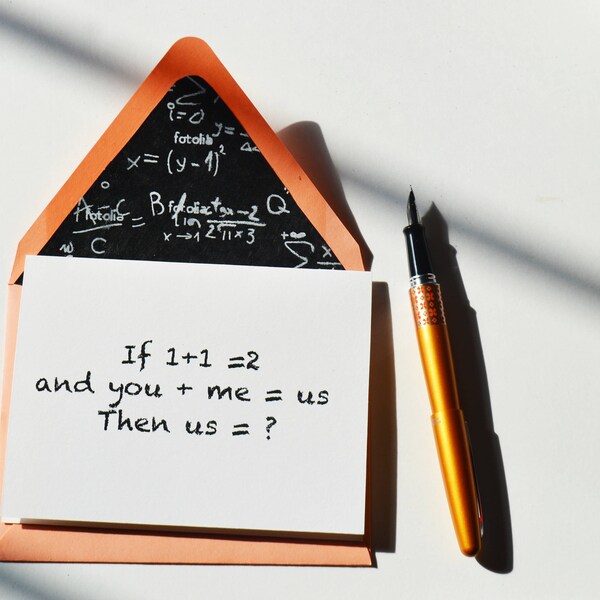 i=0
fotolia
x=(y-1)²
fotolia
B
Q
lim
x→1
2"11×3
C
+∞
If 1+1 =2
and you + me = us
Then us = ?